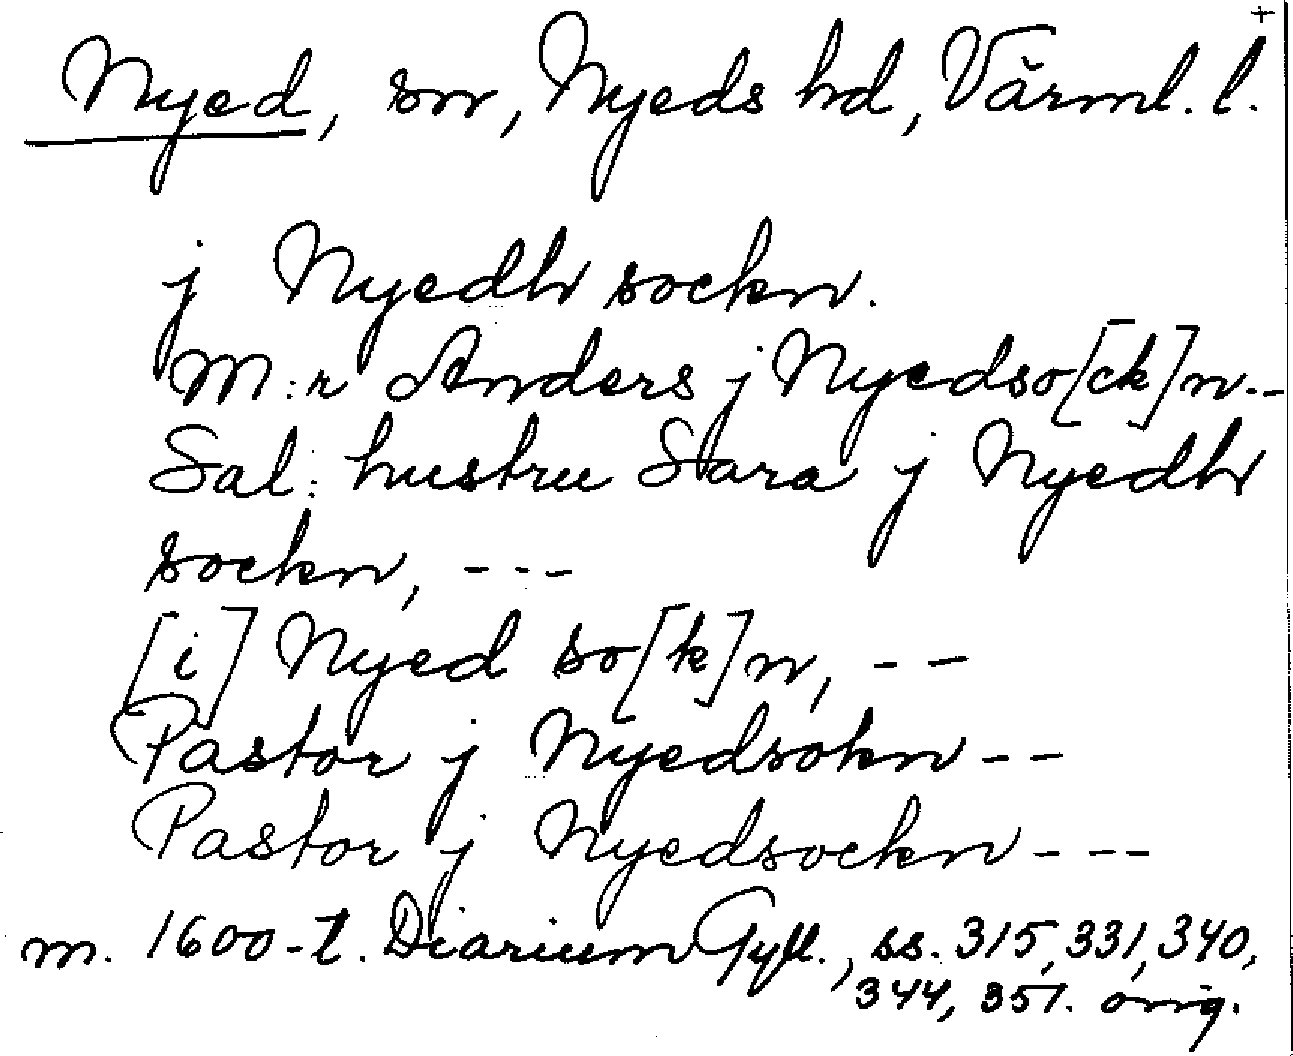 +
Nyed, sn, Nyeds hd, Värml. l.
j Nyedh sockn.
M:r Anders j Nyedso[ck]n.--
Sal: hustru Sara j Nyedh
sockn, ---
[i] Nyed so[k]n, --
Pastor j Nyedsokn --
Pastor j Nyedsockn ---
m. 1600-t. Diarium Gyll., ss. 315, 331, 340,
344, 351. orig.